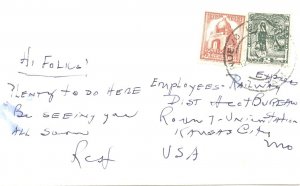 Hi Folks!
Plenty to do here
Be seeing you
all soon
Employees - Railway
Dist
Bureau
Room 7 - Union Station
Kansas City
Mo
USA